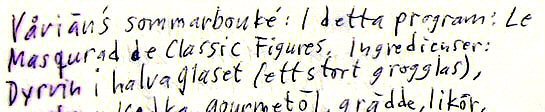 Våriän's sommarbouké: I detta program: Le
Masqurad de Classic Figures. Ingredienser:
Dyrvin i halva glaset (ett stort grogglas),
gourmetöl, grädde, likör,